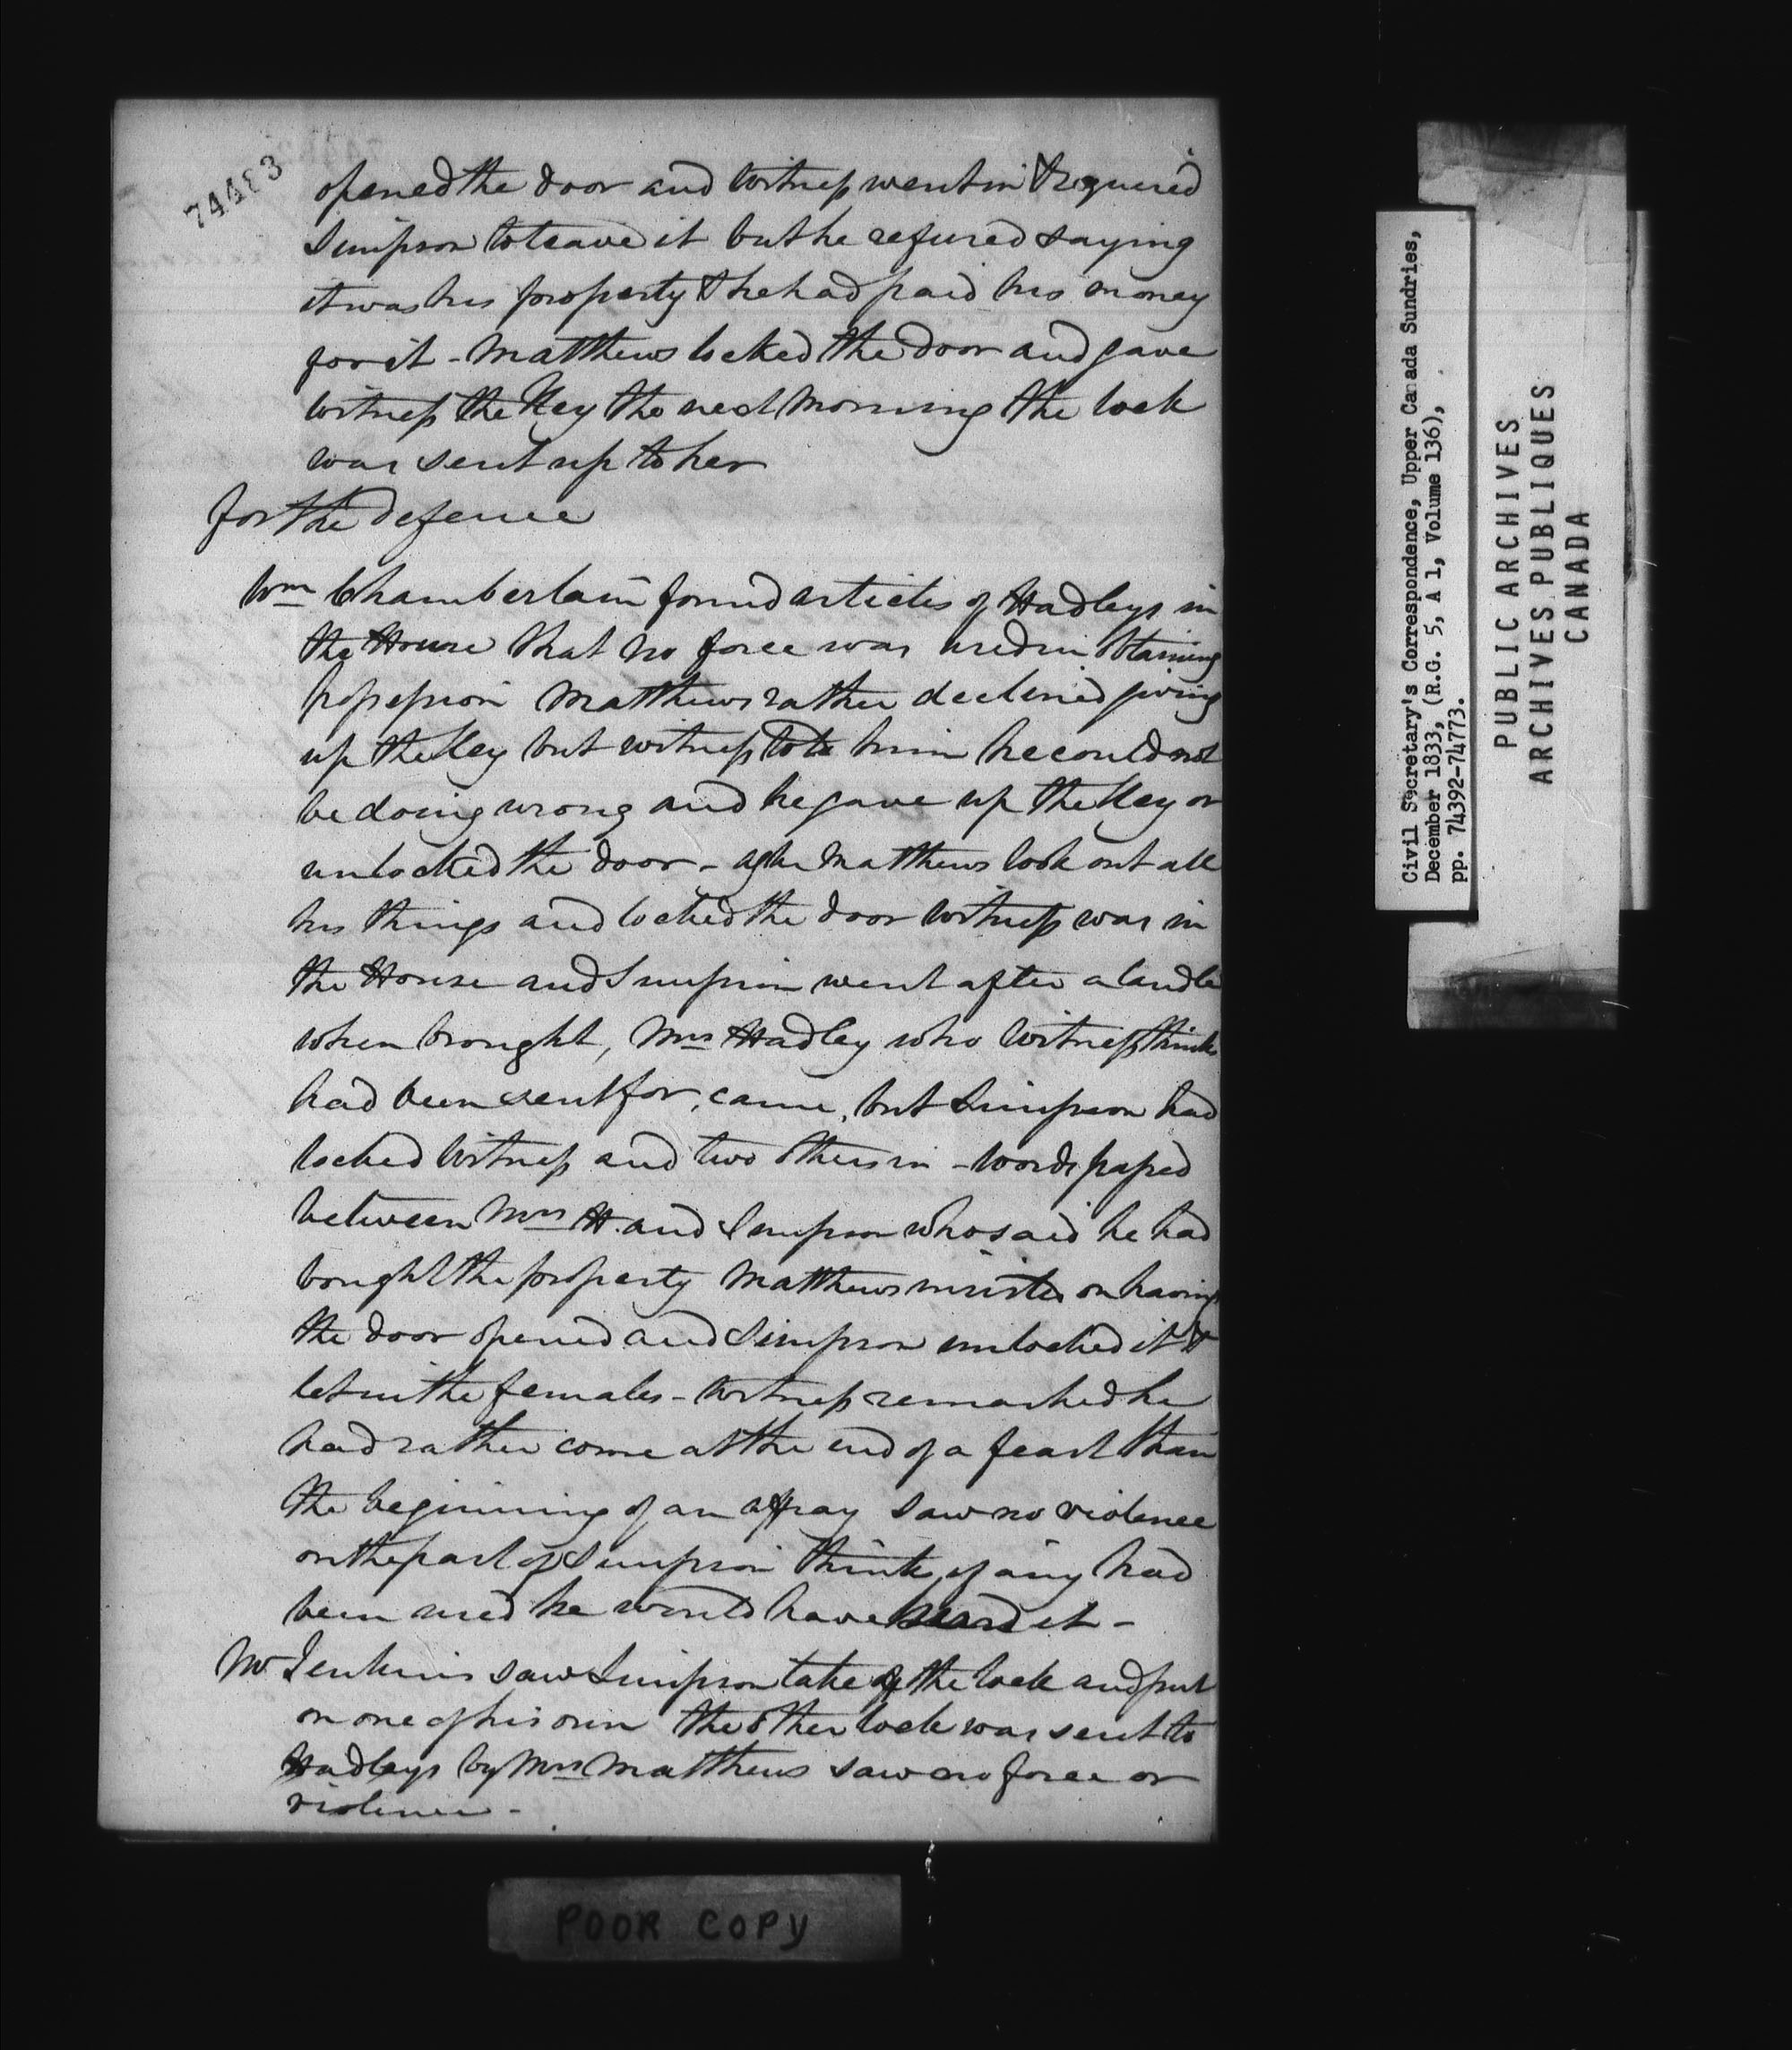 74483
opened the door and witness went in & requered
Simpson to leave it but he refused saying
it was his property & he had paid his money
for it - Matthews locked the door and gave
witness the Key the next morning the lock
was sent up to her
for the defence
Wm Chamberlain found articles of Hadleys in
the House that no force was used in obtaining
possession Matthews rather declined giving
up the Key but witness told him he could not
be doing wrong and he gave up the Key or
unlocked the door - after Matthews took out all
his things and locked the door witness was in
the House and Simpson went after a Candle
when brought, Mrs Hadley who witness thinks
had been sent for, came, but Simpson had
locked witness and two others in - words passed
between Mrs H. and Simpson who said he had
bought the property Matthews insisted on having
the door opened and Simpson unlocked it &
let in the females - witness remarked he
had rather come at the end of a feast than
the beginning of an affray saw no violence
on the part of Simpson thinks if any had
been used he would have heard it -
Mr Jenkins saw Simpson take off the lock and put
on one of his own the other lock was sent to
Hadleys by Mrs Matthews saw no force or
violence -
POOR COPY
Civil Secretary's Correspondence, Upper Canada Sundries,
December 1833, (R.G. 5, A 1, Volume 136),
pp. 74392-74773.
PUBLIC ARCHIVES
ARCHIVES PUBLIQUES
CANADA